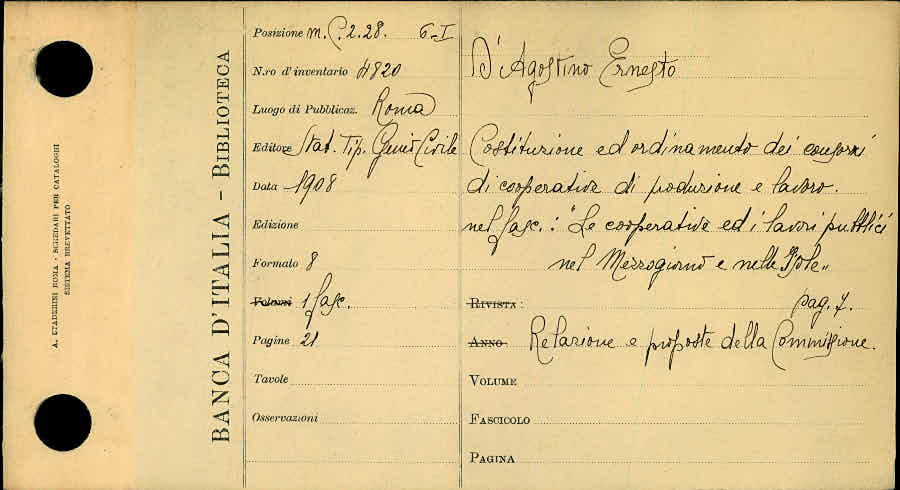 A. STADERINI ROMA - SCHEDARI PER CATALOGHI
SISTEMA BREVETTATO
BANCA D'ITALIA - BIBLIOTECA
Posizione m. C. 2. 28. 6-I
N.ro d'inventario 4820
Luogo di Pubblicaz. Roma
Editore Stab. Tip. Genio Civile
Data 1908
Edizione
Formato 8
Volumi 1 fasc.
Pagine 21
Tavole
Osservazioni
D'Agostino Ernesto
Costituzione ed ordinamento dei consorzi
di cooperative di produzione e lavoro.
nel fasc.: "Le cooperative ed i lavori pubblici
nel Mezzogiorno e nelle Isole"
RIVISTA: pag. 7.
ANNO. Relazione e proposte della Commissione.
VOLUME
FASCICOLO
PAGINA